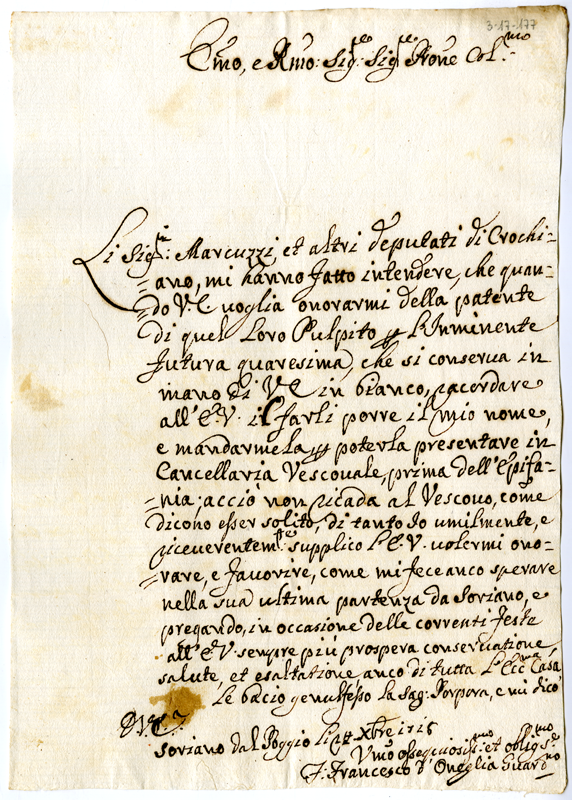 3-17-177
Emo, e Rmo: Sig:re Sig:re Prone Col:mo
Li Sig:ri Marcuzzi, et altri deputati di Crochi=
=ano, mi hanno fatto intendere, che quan=
=do V.E. voglia onorarmi della patente
di quel Loro Pulpito p L'Inminente
futura quaresima, che si conserva in
mano di V.E. in bianco, racordare
all'E.V. il farli porre il mio nome,
e mandarmela p poterla presentare in
Cancellaria Vescovale, prima dell'Epifa=
=nia; acciò non ricada al Vescovo, come
dicono esser solito, di tanto Io umilmente, e
riceverentem:te supplico L'E.V. volermi ono=
=rare, e favorire, come mi fece anco sperare
nella sua ultima partenza da Soriano, e
pregando, in occasione delle correnti feste
all'E.V. sempre più prospera conservatione,
salute, et esaltatione anco di tutta l'Ecc:ma Casa
Le bacio genuflesso la Sag: Porpora, e mi dico
Soriano dal Poggio li Xbre 1715
Vmo ossequiosis:mo et oblig:mo
F. Francesco d'Oneglia Guard:no